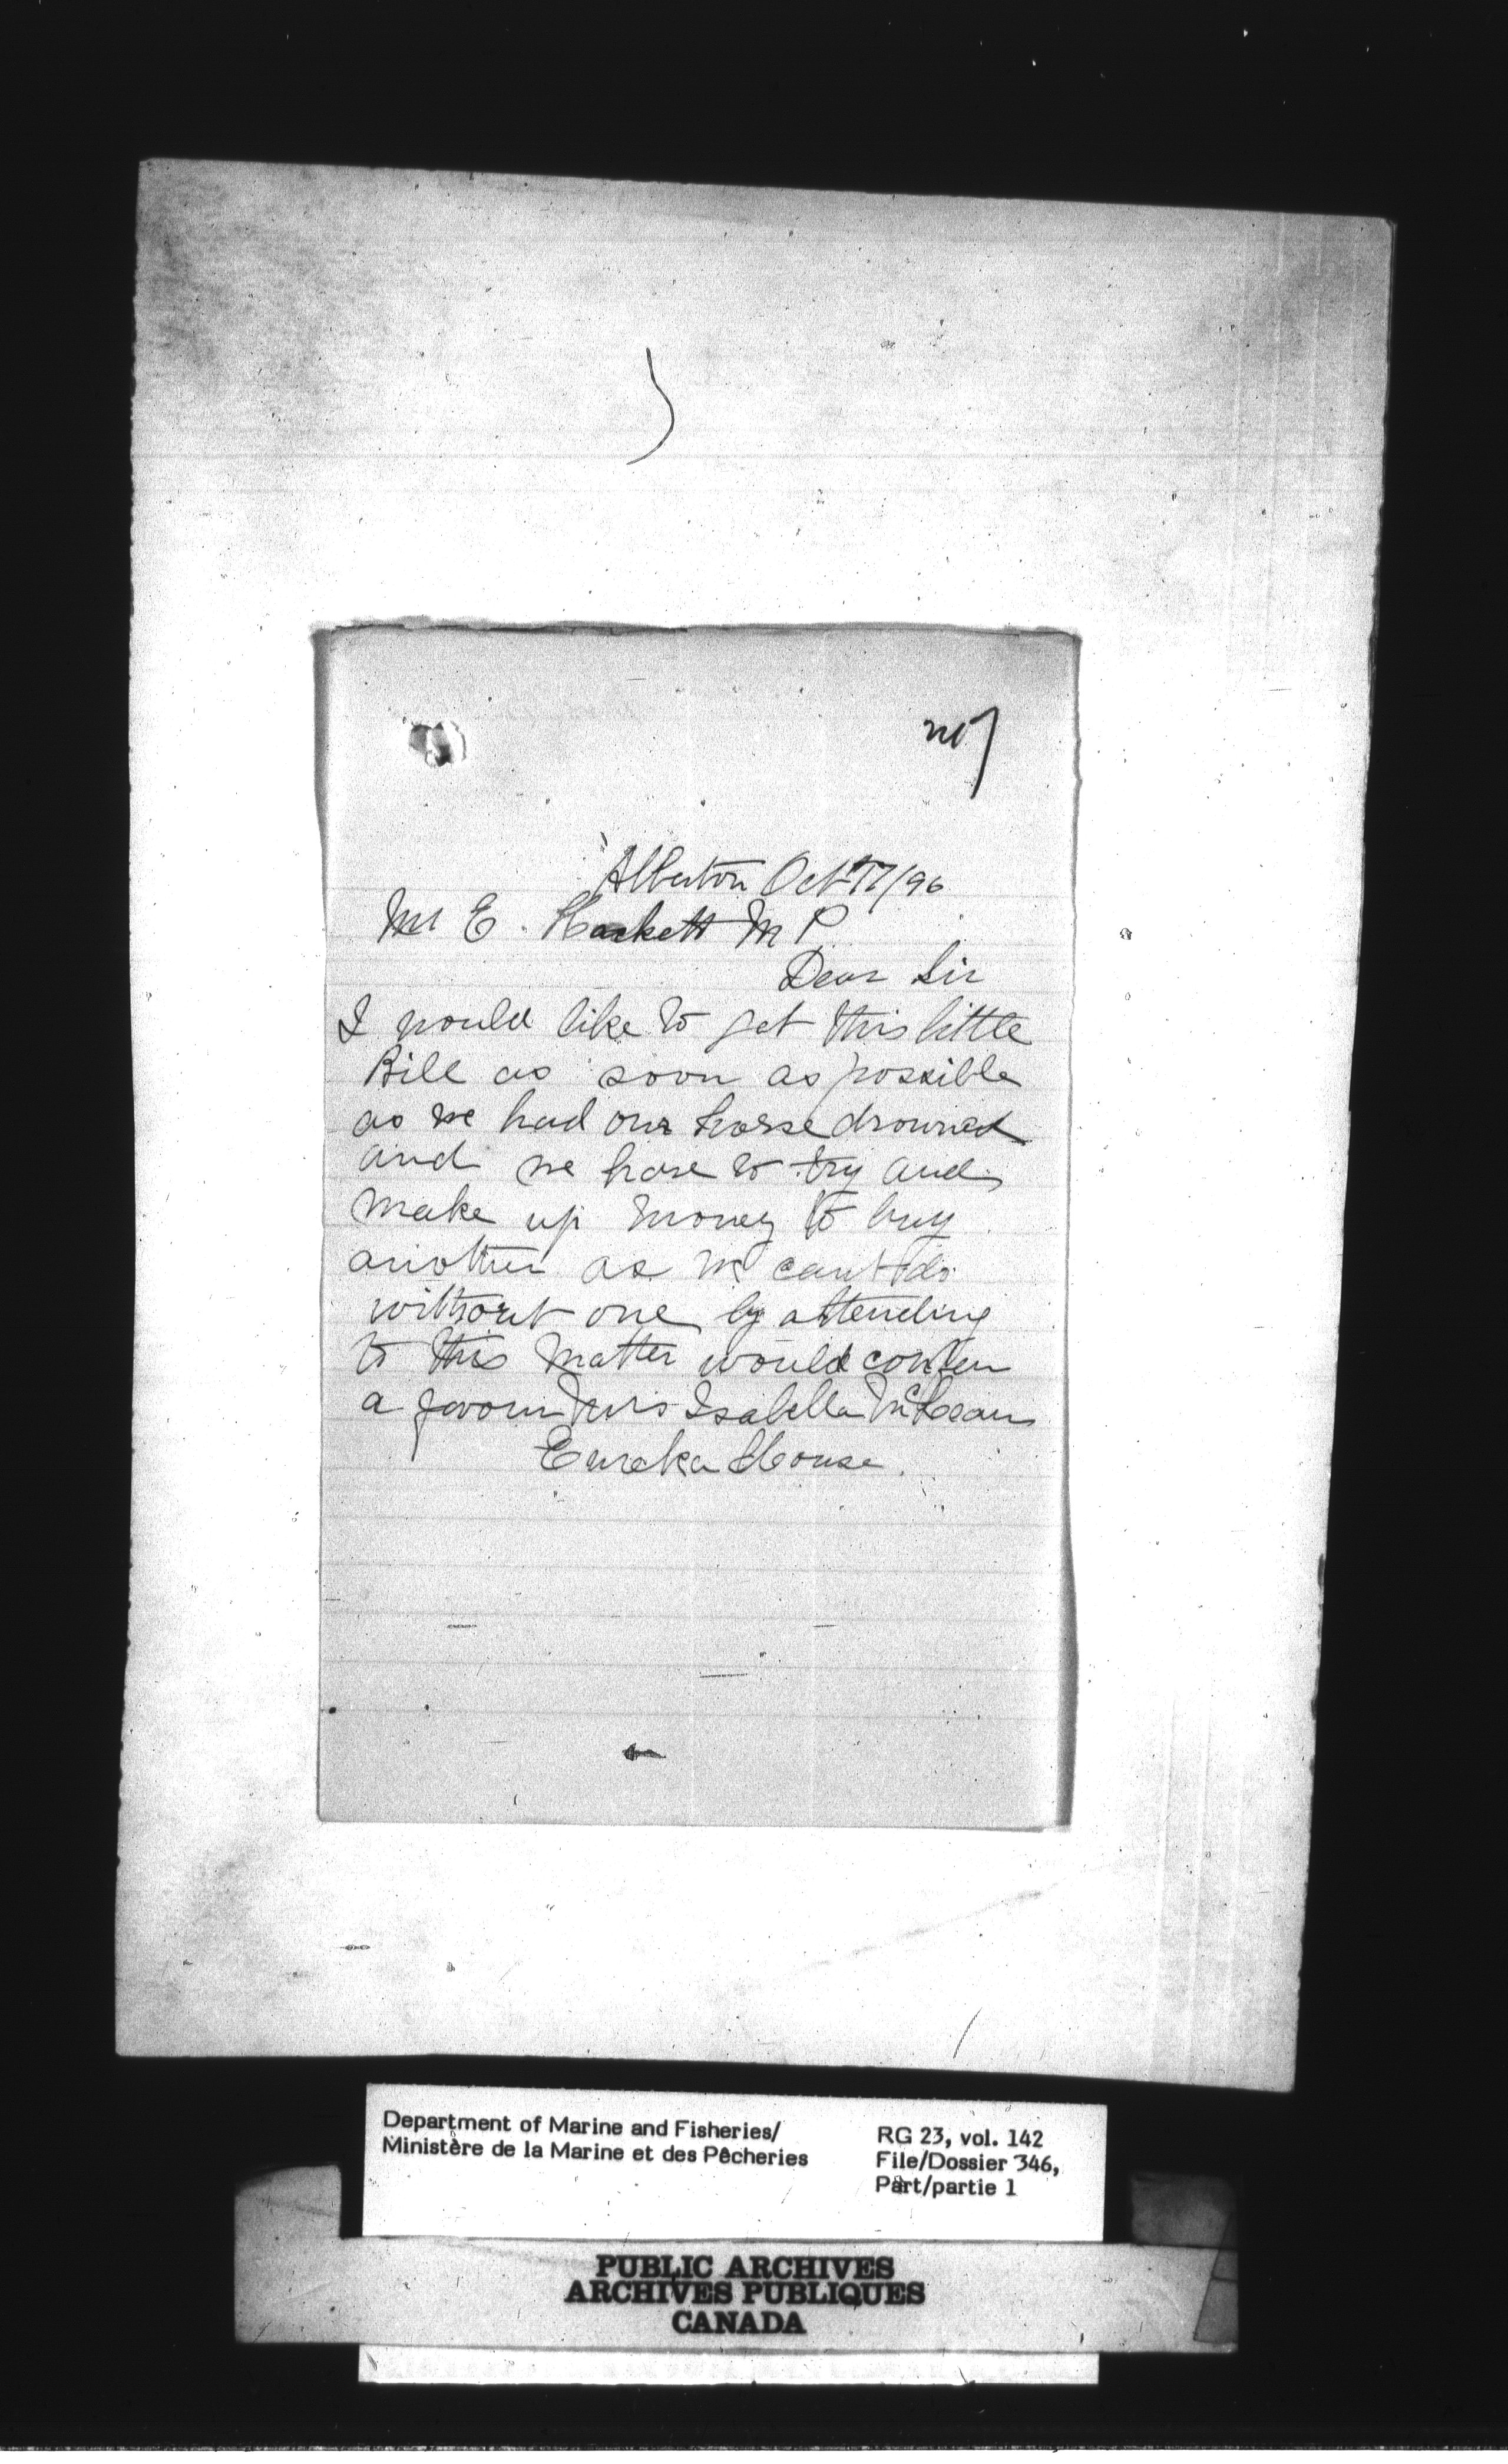 Alberton Oct 17/96
Mr E. Hackett M P
Dear Sir
I would like to get this little
Bill as soon as possible
as we had our horse drowned
and we have to try and
make up money to buy
another as we cant do
without one by attending
to this matter would confer
a favour Mrs Isabella McLean
Eureka House.
Department of Marine and Fisheries/
Ministère de la Marine et des Pêcheries
RG 23, vol. 142
File/Dossier 346,
Part/partie 1
PUBLIC ARCHIVES
ARCHIVES PUBLIQUES
CANADA